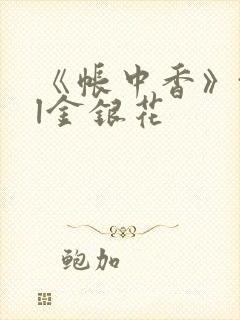 《帐中香》
|金银花
鲍加